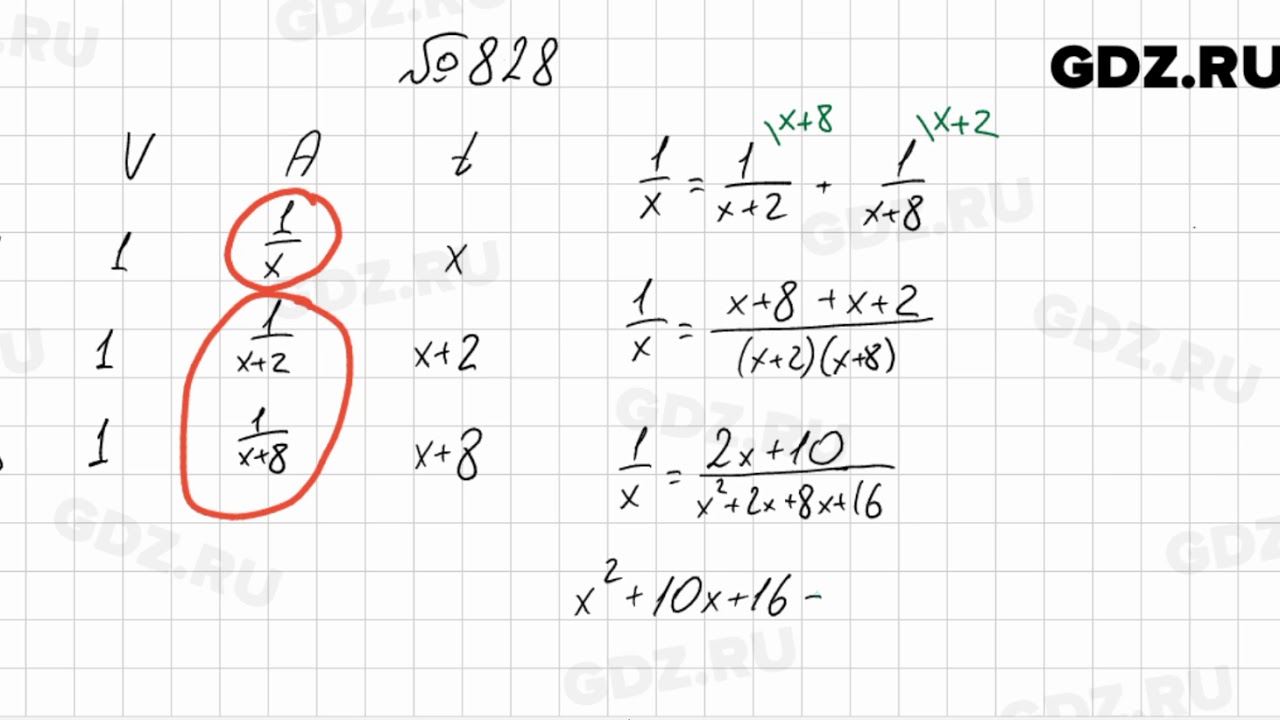 №828
GDZ.RU
V A t
1 1/x x
1 1/(x+2) x+2
1 1/(x+8) x+8
1/x = 1/(x+2) \x+8 + 1/(x+8) \x+2
1/x = (x+8+x+2)/((x+2)(x+8))
1/x = (2x+10)/(x²+2x+8x+16)
x²+10x+16 -
GDZ.RU
GDZ.RU
GDZ.RU
GDZ.RU
GDZ.RU
GDZ.RU
GDZ.RU
GDZ.RU
GDZ.RU